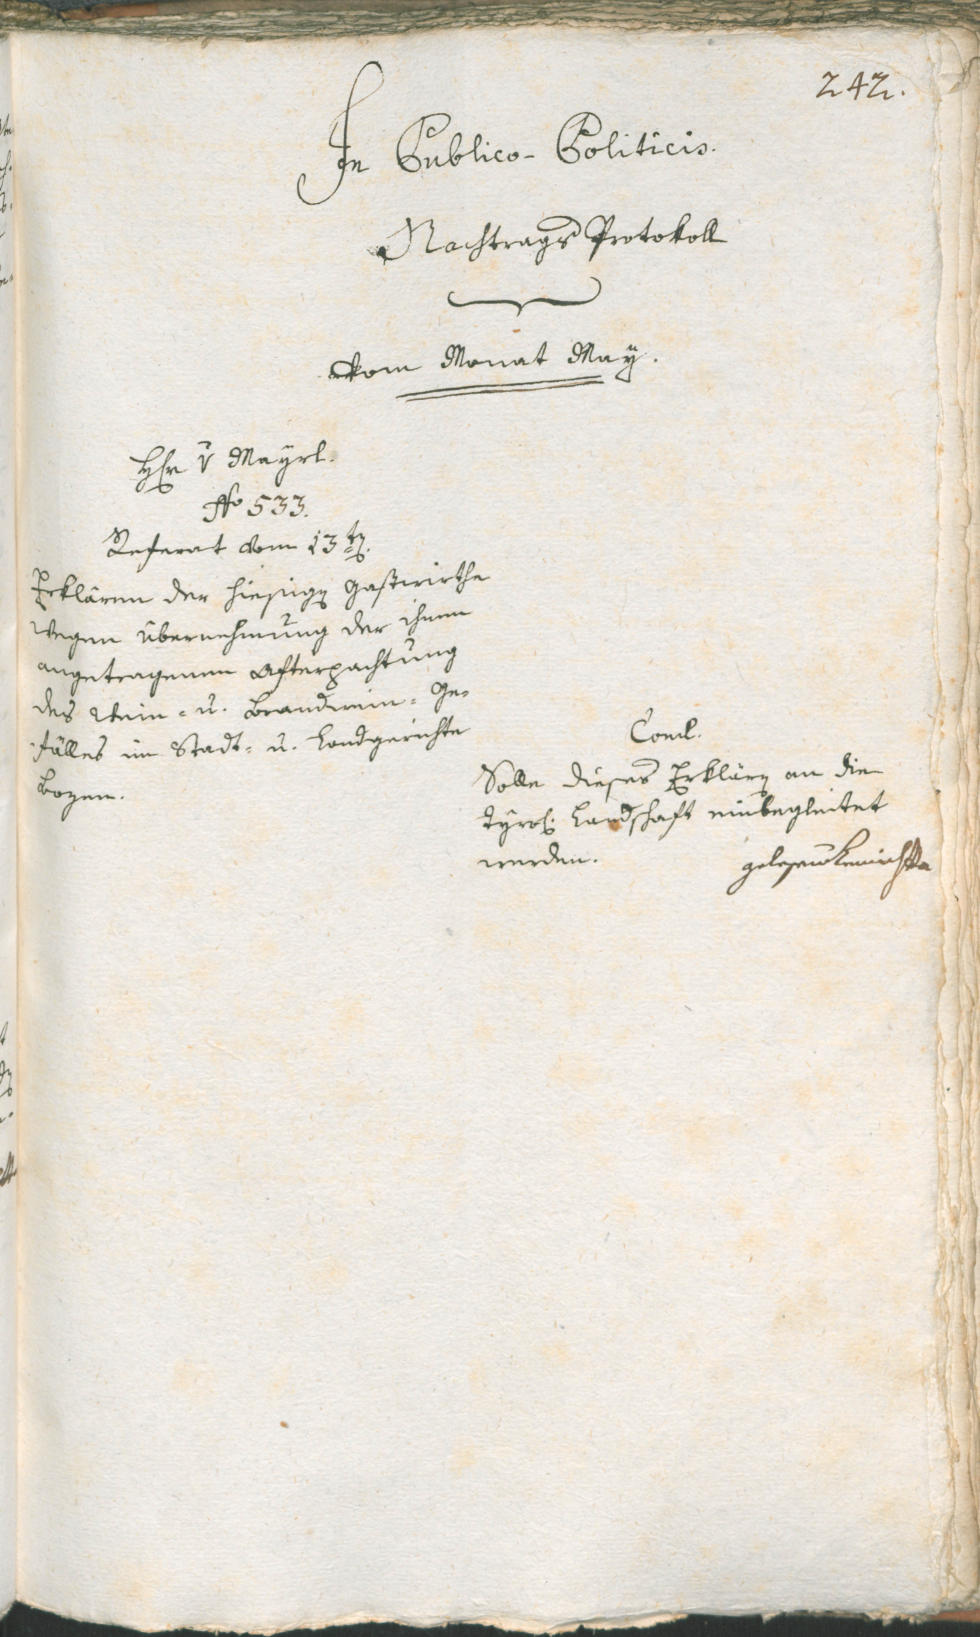 242.
In Publico-Politicis.
Nachtrags Protokoll
vom Monat May.
H: v Mayrl.
No 533.
Referat vom 13t.
Erklären der hiesig Gastwirthe
wegen übernehmung der ihnen
angetragenen Afterpachtung
des Wein- u. Brandwein-Ge-
fälles im Stadt- u. Landgerichte
Bozen.
Concl.
Solle dieses Erklärg an die
Tyrol: Landschaft einbegleitet
werden.
gelesen